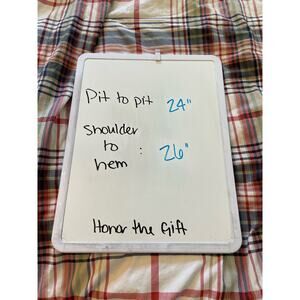 Pit to pit 24"
Shoulder
to : 26"
hem
Honor the Gift